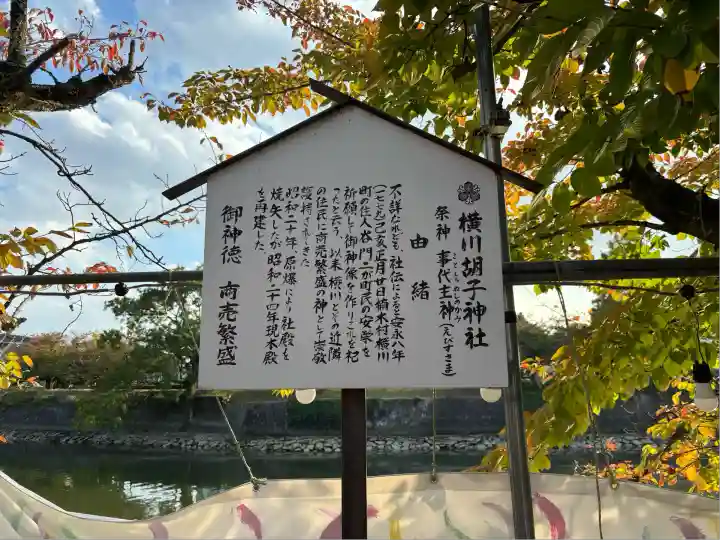 横川胡子神社
祭神 事代主神(えびすさま)
ことしろぬしのかみ
由緒
不詳なれども、社伝によると安永八年
(一七七九)己亥正月廿日楠木村横川
町の住人谷門一が町民の安泰を
祈願して御神像を作りこれを祀
ったと云う 以来横川とその近隣
の住民に商売繁盛の神として崇敬
護持されてきた
昭和二十年 原爆により社殿を
焼失したが昭和二十四年現本殿
を再建した
御神徳 商売繁盛